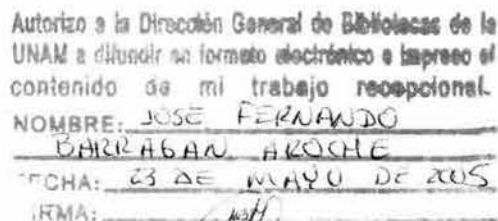 Autorizo a la Dirección General de Bibliotecas de la
UNAM a difundir en formato electrónico e impreso el
contenido de mi trabajo recepcional.
NOMBRE: JOSE FERNANDO
BARRAGAN AROCHE
FECHA: 23 DE MAYO DE 2005
FIRMA: